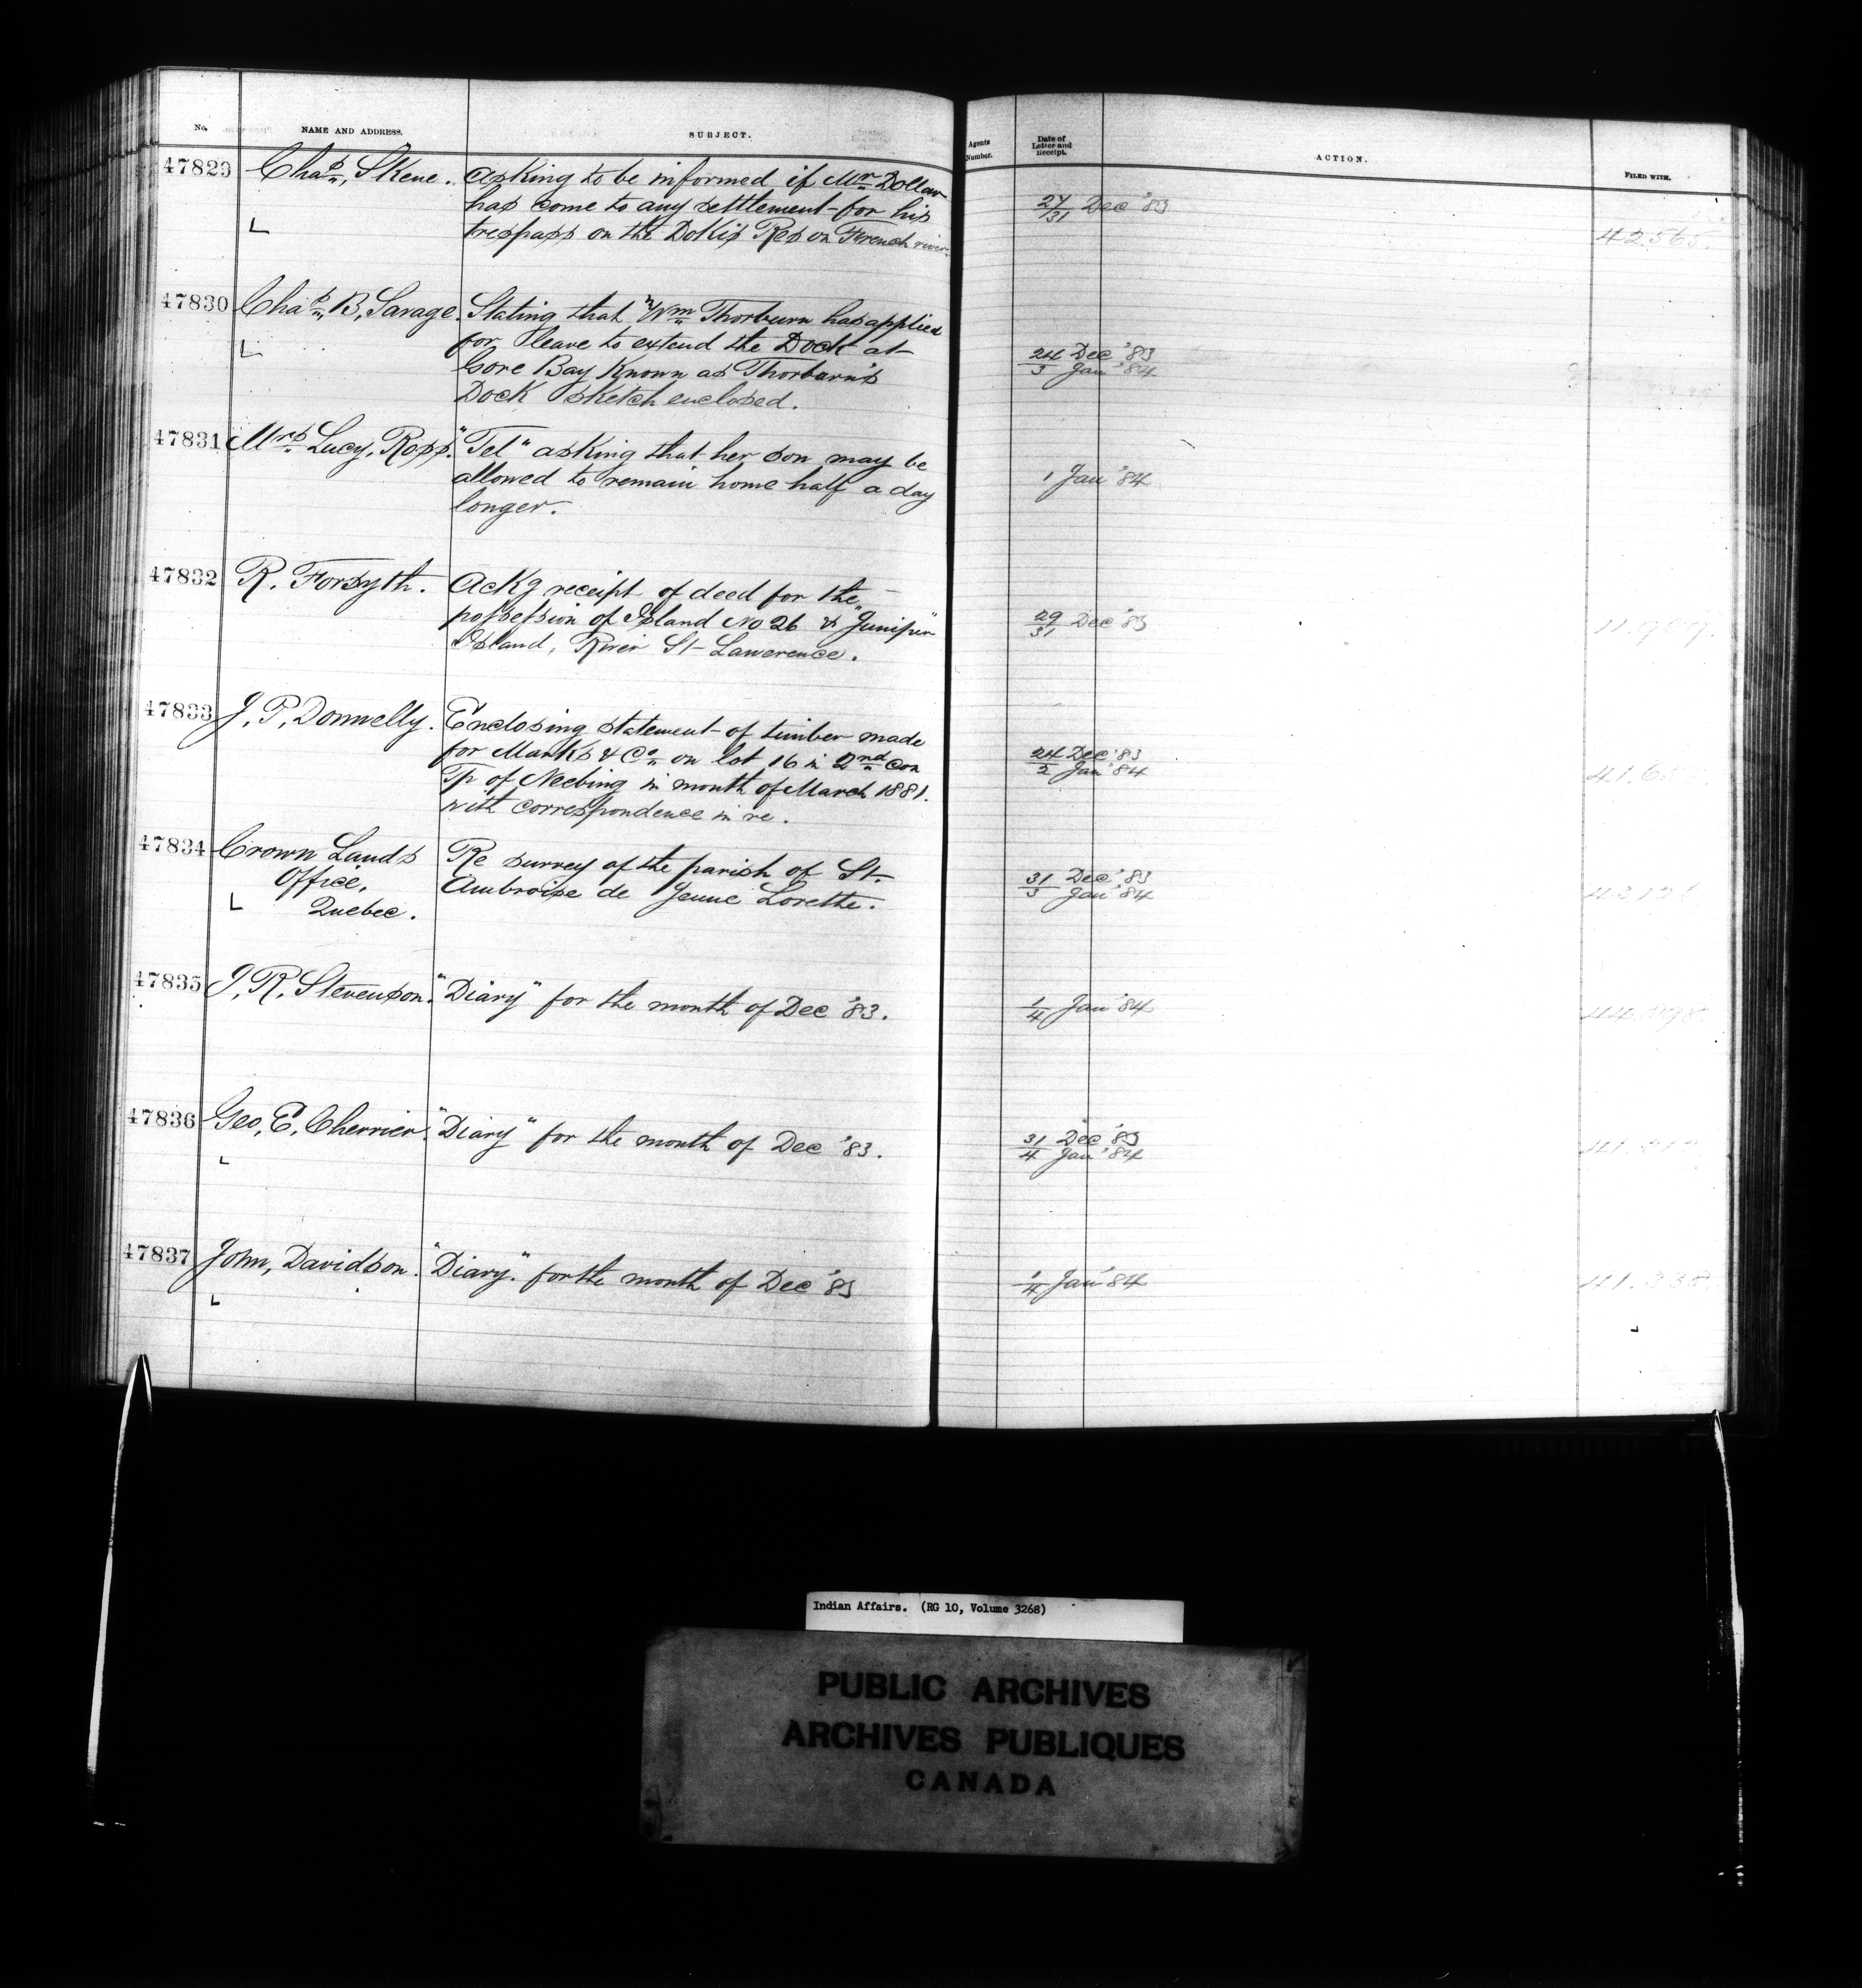 No. NAME AND ADDRESS. SUBJECT. Agents Number. Date of Letter and Receipt. ACTION. FILED WITH.
47829 Chas, Skene. Asking to be informed if Mr Dollar
has come to any settlement for his 27/31 Dec '83
trespass on the Dokis Res on French river 42.565.
47830 Chas B, Savage. Stating that "Wm Thorburn has applied
for leave to extend the Dock at 24 Dec '83
Gore Bay Known as Thorburn's 3 Jan '84
Dock sketch enclosed.
47831 Mrs Lucy, Ross. "Tel" asking that her son may be
allowed to remain home half a day 1 Jan '84
longer.
47832 R. Forsyth. Ackg receipt of deed for the
possession of Island No 26 & "Juniper" 29/31 Dec '83
Island, River St Lawerence.
47833 J, P, Donnelly. Enclosing statement of timber made
for Marks & Co on lot 16 in 2nd Con 24 Dec '83
Tp of Neebing in month of March 1881. 2 Jan '84
with correspondence in re.
47834 Crown Lands Re survey of the parish of St
Office, Ambroise de Jeune Lorette. 31 Dec '83
Quebec. 3 Jan '84
47835 J, R, Stevenson. "Diary" for the month of Dec '83. 1/4 Jan '84
47836 Geo, E, Cherrier. "Diary" for the month of Dec '83. 31 Dec '83
4 Jan '84
47837 John, Davidson. "Diary." for the month of Dec '83 1/4 Jan '84
Indian Affairs. (RG 10, Volume 3268)
PUBLIC ARCHIVES
ARCHIVES PUBLIQUES
CANADA